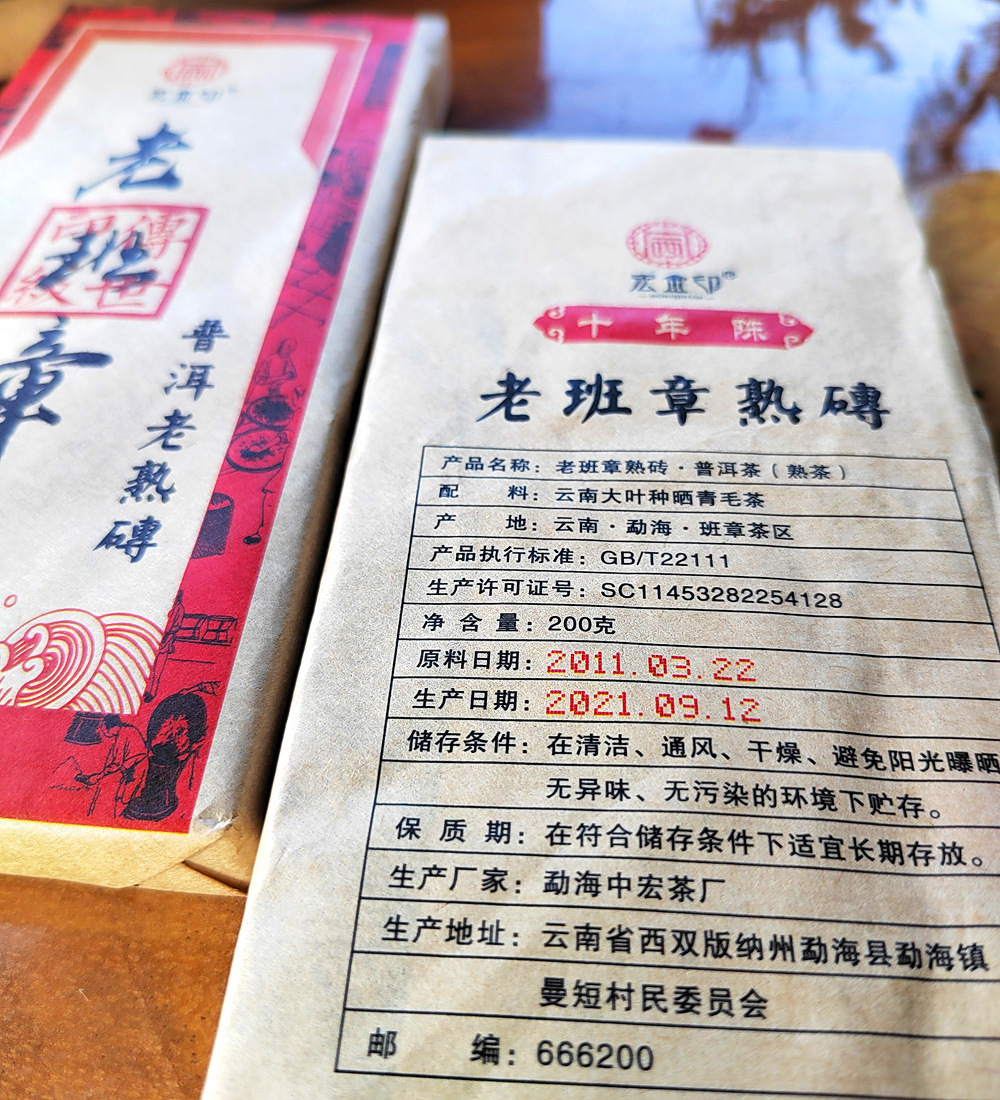 宏金印
老班章
傳世印級
普洱老熟磚
宏金印
十年陈
老班章熟磚
产品名称：老班章熟砖·普洱茶（熟茶）
配 料：云南大叶种晒青毛茶
产 地：云南·勐海·班章茶区
产品执行标准：GB/T22111
生产许可证号：SC11453282254128
净 含 量：200克
原料日期：2011.03.22
生产日期：2021.09.12
储存条件：在清洁、通风、干燥、避免阳光曝晒
无异味、无污染的环境下贮存。
保 质 期：在符合储存条件下适宜长期存放。
生产厂家：勐海中宏茶厂
生产地址：云南省西双版纳州勐海县勐海镇
曼短村民委员会
邮 编：666200